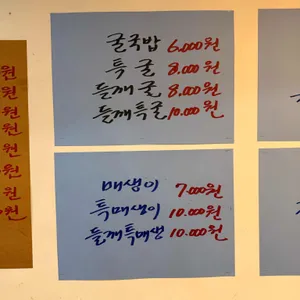 원
원
원
원
원
원
원
원
굴국밥 6.000원
특굴 8.000원
들깨굴 8.000원
들깨특굴 10.000원
매생이 7.000원
특매생이 10.000원
들깨특매생 10.000원